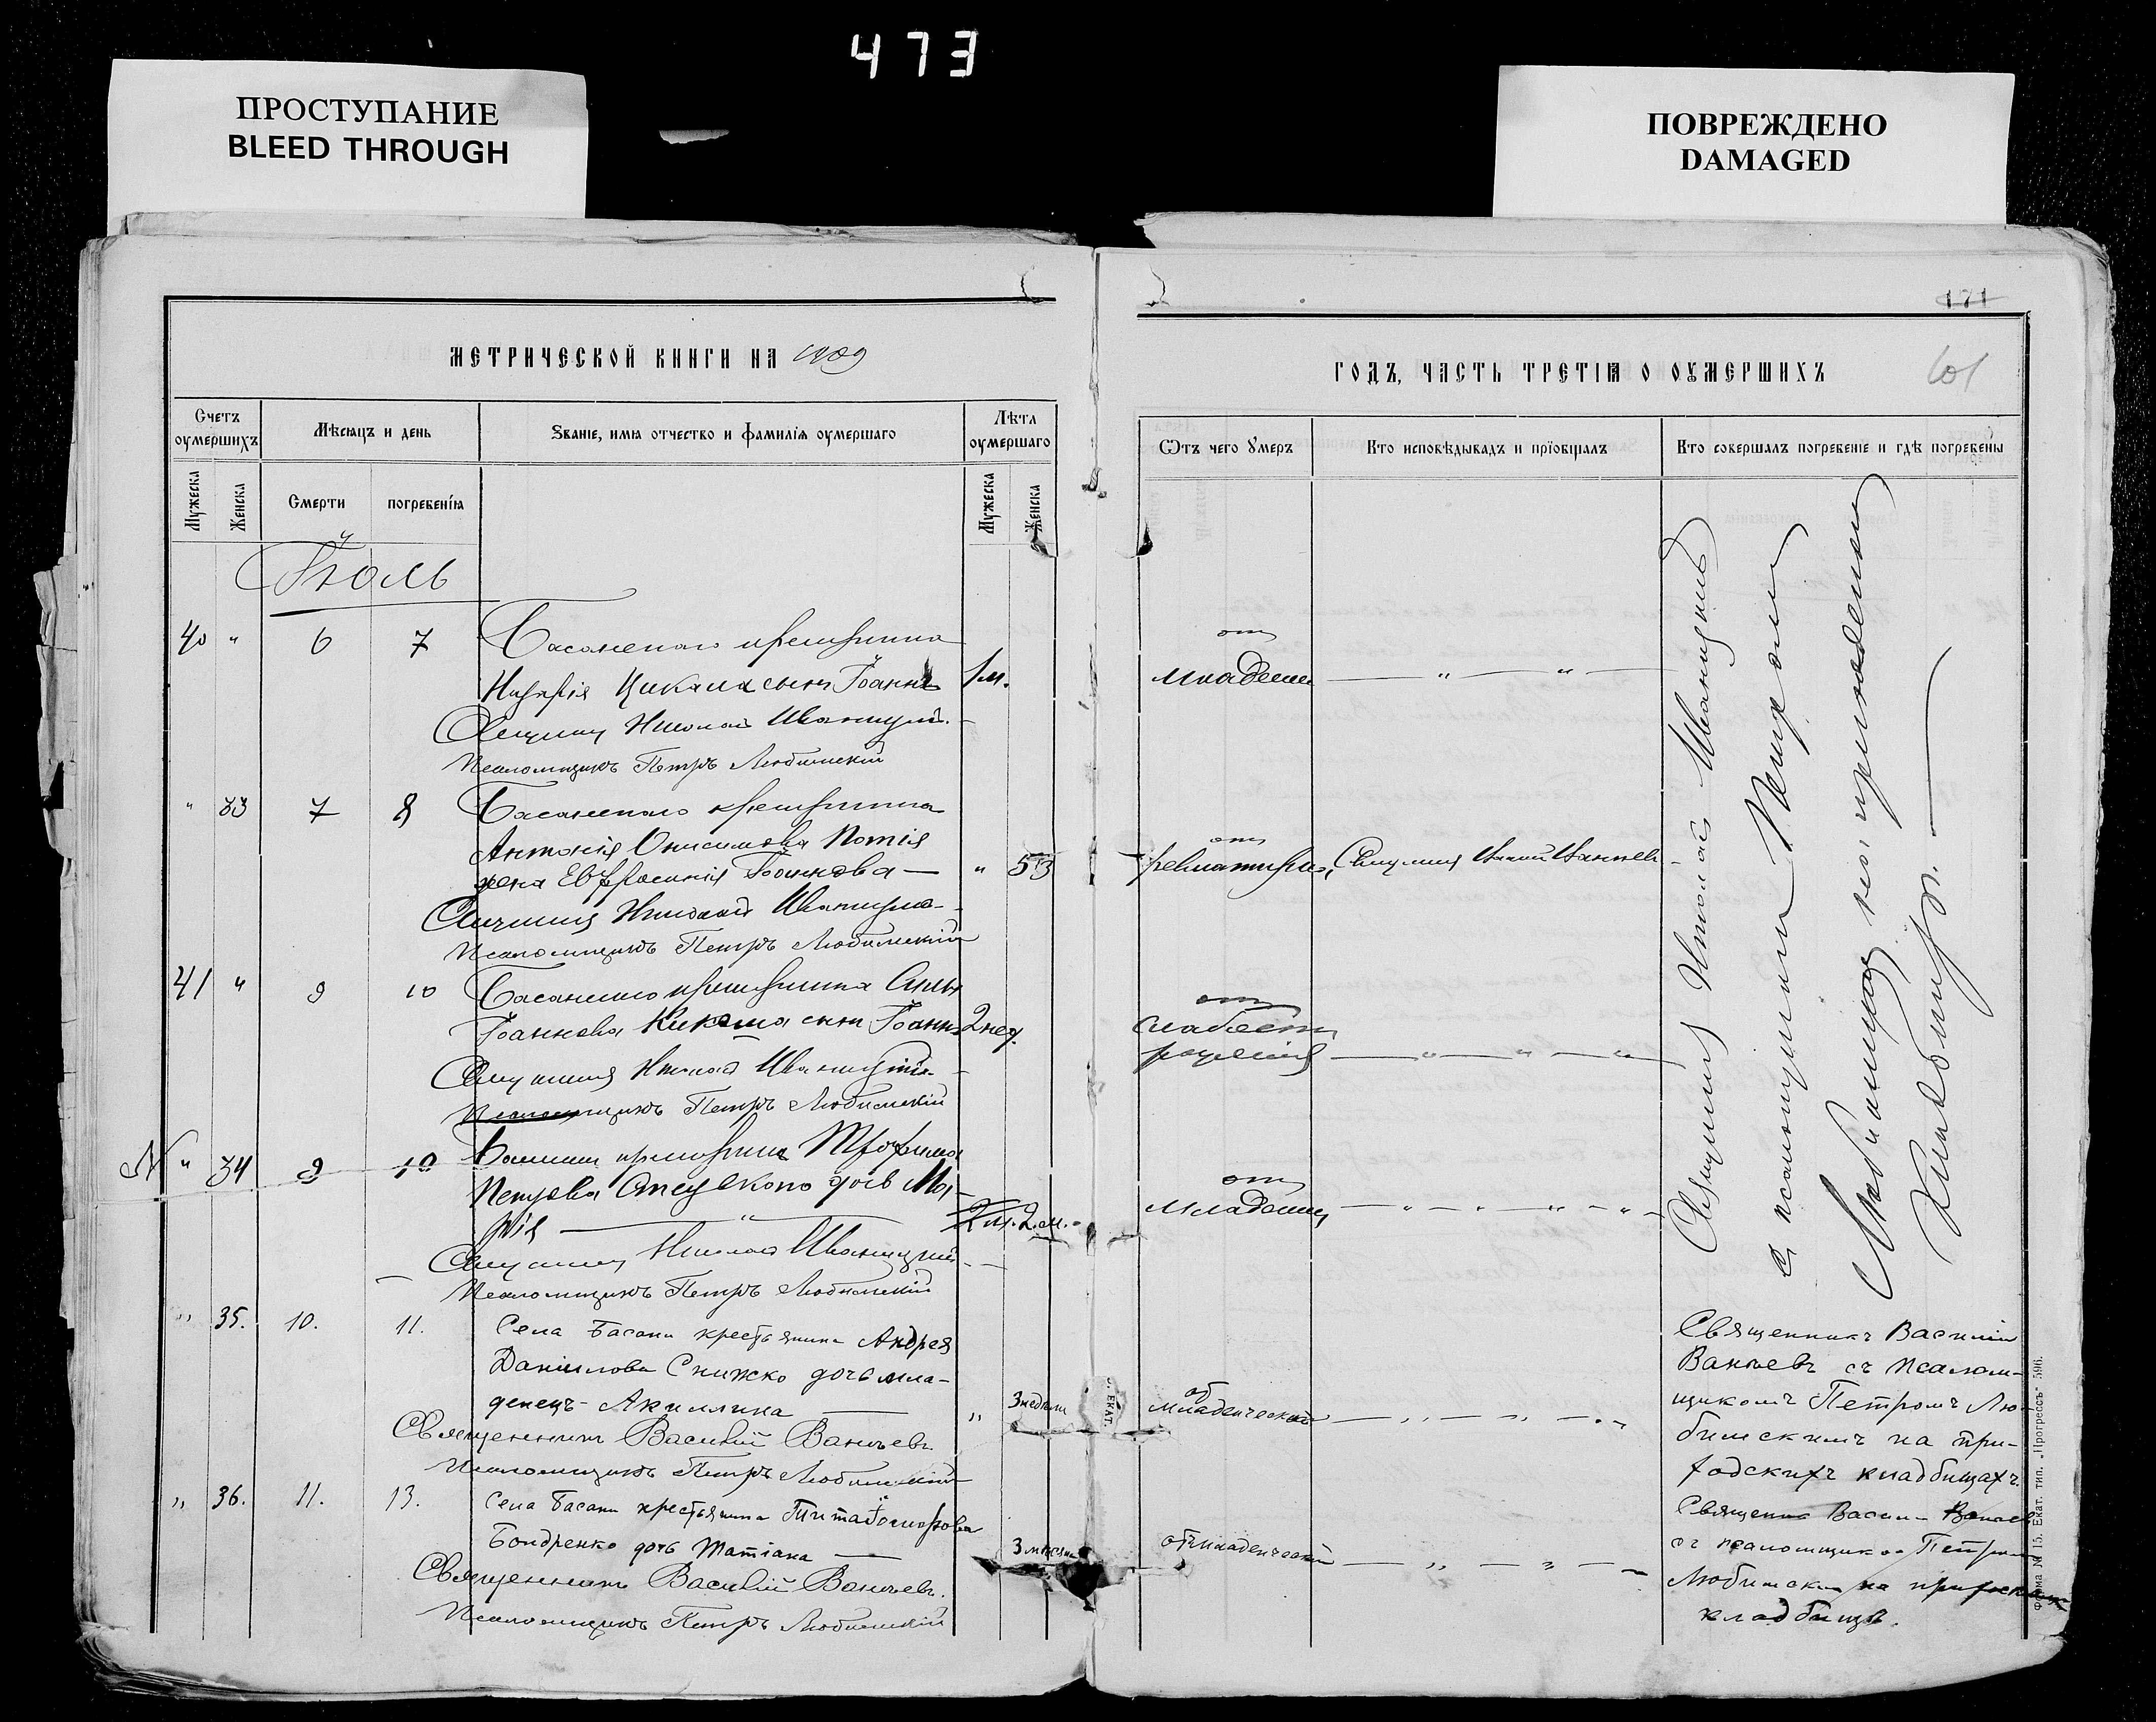 473
ПРОСТУПАНИЕ
BLEED THROUGH
ПОВРЕЖДЕНО
DAMAGED
МЕТРИЧЕСКОЙ КНИГИ НА 1909
Счетъ оумершихъ
Мѣсяцъ и день
Званіе, имя отчество и фамилія оумершаго
Лѣта оумершаго
Мужеска
Женска
Смерти
погребенія
Мужеска
Женска
Іюль
40 " 6 7 Басанскаго крестьянина
Назарія Цикала сынъ Іоаннъ 1 м.
Священникъ Николай Иваницкій
Псаломщикъ Петръ Любимскій
" 33 7 8 Басанскаго крестьянина
Антонія Онисимова
жена Евфросинія Іоаннова — " 53
Священникъ Николай Иваницкій
Псаломщикъ Петръ Любимскій
41 " 9 10 Басанскаго крестьянина
Іоаннова сынъ Іоаннъ 2 нед.
Священникъ Николай Иваницкій
Псаломщикъ Петръ Любимскій
" 34 9 10 крестьянина Трофима
Петрова дочь Ма-
рія — " — 2 м. 2 м.
Священникъ Николай Иваницкій
Псаломщикъ Петръ Любимскій
" 35. 10. 11. Села Басани крестьянина Андрея
Даніилова Снижко дочь мла-
денецъ Акилина — " 3 недѣли
Священникъ Василій Ваньевъ
Псаломщикъ Петръ Любимскій
" 36. 11. 13. Села Басани крестьянина Тита
Бондренко дочь Татіана — 3 мѣсяца
Священникъ Василій Ваньевъ.
Псаломщикъ Петръ Любимскій
171
ГОДЪ, ЧАСТЬ ТРЕТІЯ О ОУМЕРШИХЪ
601
Ѿтъ чего Умеръ
Кто исповѣдывалъ и пріобщалъ
Кто совершалъ погребеніе и гдѣ погребены
отъ
младенч
отъ
ревматизма, Священникъ
отъ
слабости
рожденія
отъ
младенч
отъ
младенческой
отъ младенческой
Священникъ Николай Иваницкій
съ псаломщикомъ Петромъ
Любимскимъ на приходскомъ
кладбищѣ.
Священникъ Василій
Ваньевъ съ псалом-
щикомъ Петромъ Лю-
бимскимъ на при-
ходскихъ кладбищахъ.
Священникъ Васил Ваньев
съ псаломщико Петром
Любимским на приходском
кладбищѣ.
Форма № 15. Екат. тип. „Прогрессъ" 596.
ЕКАТ.